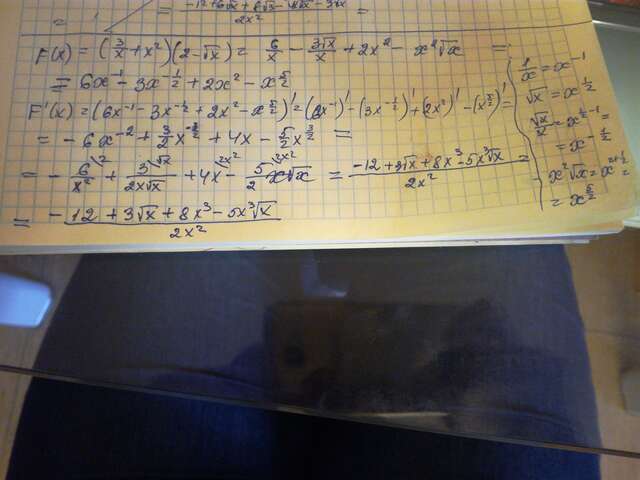 = = =
2x²
F(x) = (3/x + x²)(2 - √x) = 6/x - 3√x/x + 2x² - x²√x =
= 6x⁻¹ - 3x^(-1/2) + 2x² - x^(5/2)
F'(x) = (6x⁻¹ - 3x^(-1/2) + 2x² - x^(5/2))' = (6x⁻¹)' - (3x^(-1/2))' + (2x²)' - (x^(5/2))' =
= -6x⁻² + 3/2 x^(-3/2) + 4x - 5/2 x^(3/2) =
= - 6\2/x² + 3\√x/2x√x + 4x\2x² - 5\x²/2 x√x = (-12 + 3√x + 8x³ - 5x³√x)/2x² =
= (-12 + 3√x + 8x³ - 5x³√x)/2x²
1/x = x⁻¹
√x = x^(1/2)
√x/x = x^(1/2 - 1) =
= x^(-1/2)
x²√x = x^(2+1/2) =
= x^(5/2)